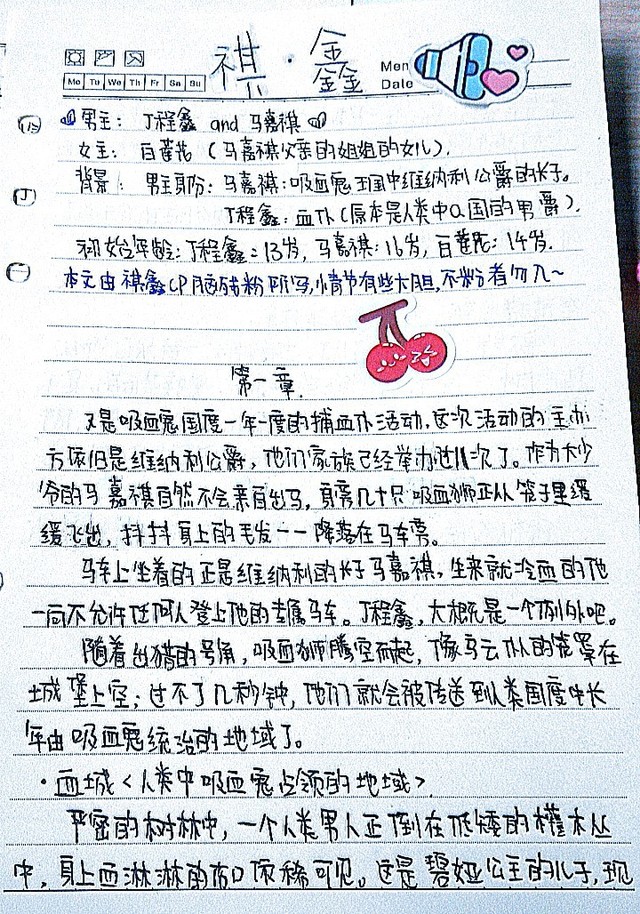 祺·鑫
Mo Tu We Th Fr Sa Su
Men
Date
男主: 丁程鑫 and 马嘉祺
女主: 白莲花 (马嘉祺父亲的姐姐的女儿).
背景: 男主身份: 马嘉祺: 吸血鬼王国中维纳利公爵的长子。
丁程鑫: 血仆(原本是人类中Q国的男爵).
初始年龄: 丁程鑫: 13岁, 马嘉祺: 16岁, 白莲花: 14岁.
本文由祺鑫CP脑残粉所写,情节有些大胆,不粉者勿入~
第一章.
又是吸血鬼国度一年一度的捕血仆活动,这次活动的主办
方依旧是维纳利公爵,他们家族已经举办过几次了。作为大少
爷的马嘉祺自然不会亲自出马,身旁几十只吸血狮正从笼子里缓
缓飞出,抖抖身上的毛发一一降落在马车旁。
马车上坐着的正是维纳利的长子马嘉祺,生来就冷血的他
一向不允许任何人登上他的专属马车。丁程鑫,大概是一个例外吧。
随着出猎的号角,吸血狮腾空而起,像乌云似的笼罩在
城堡上空;过不了几秒钟,他们就会被传送到人类国度中长
年由吸血鬼统治的地域了。
·血城<人类中吸血鬼占领的地域>.
严密的树林中,一个人类男人正倒在低矮的灌木丛
中,身上血淋淋的伤口依稀可见。这是碧娅公主的儿子,现